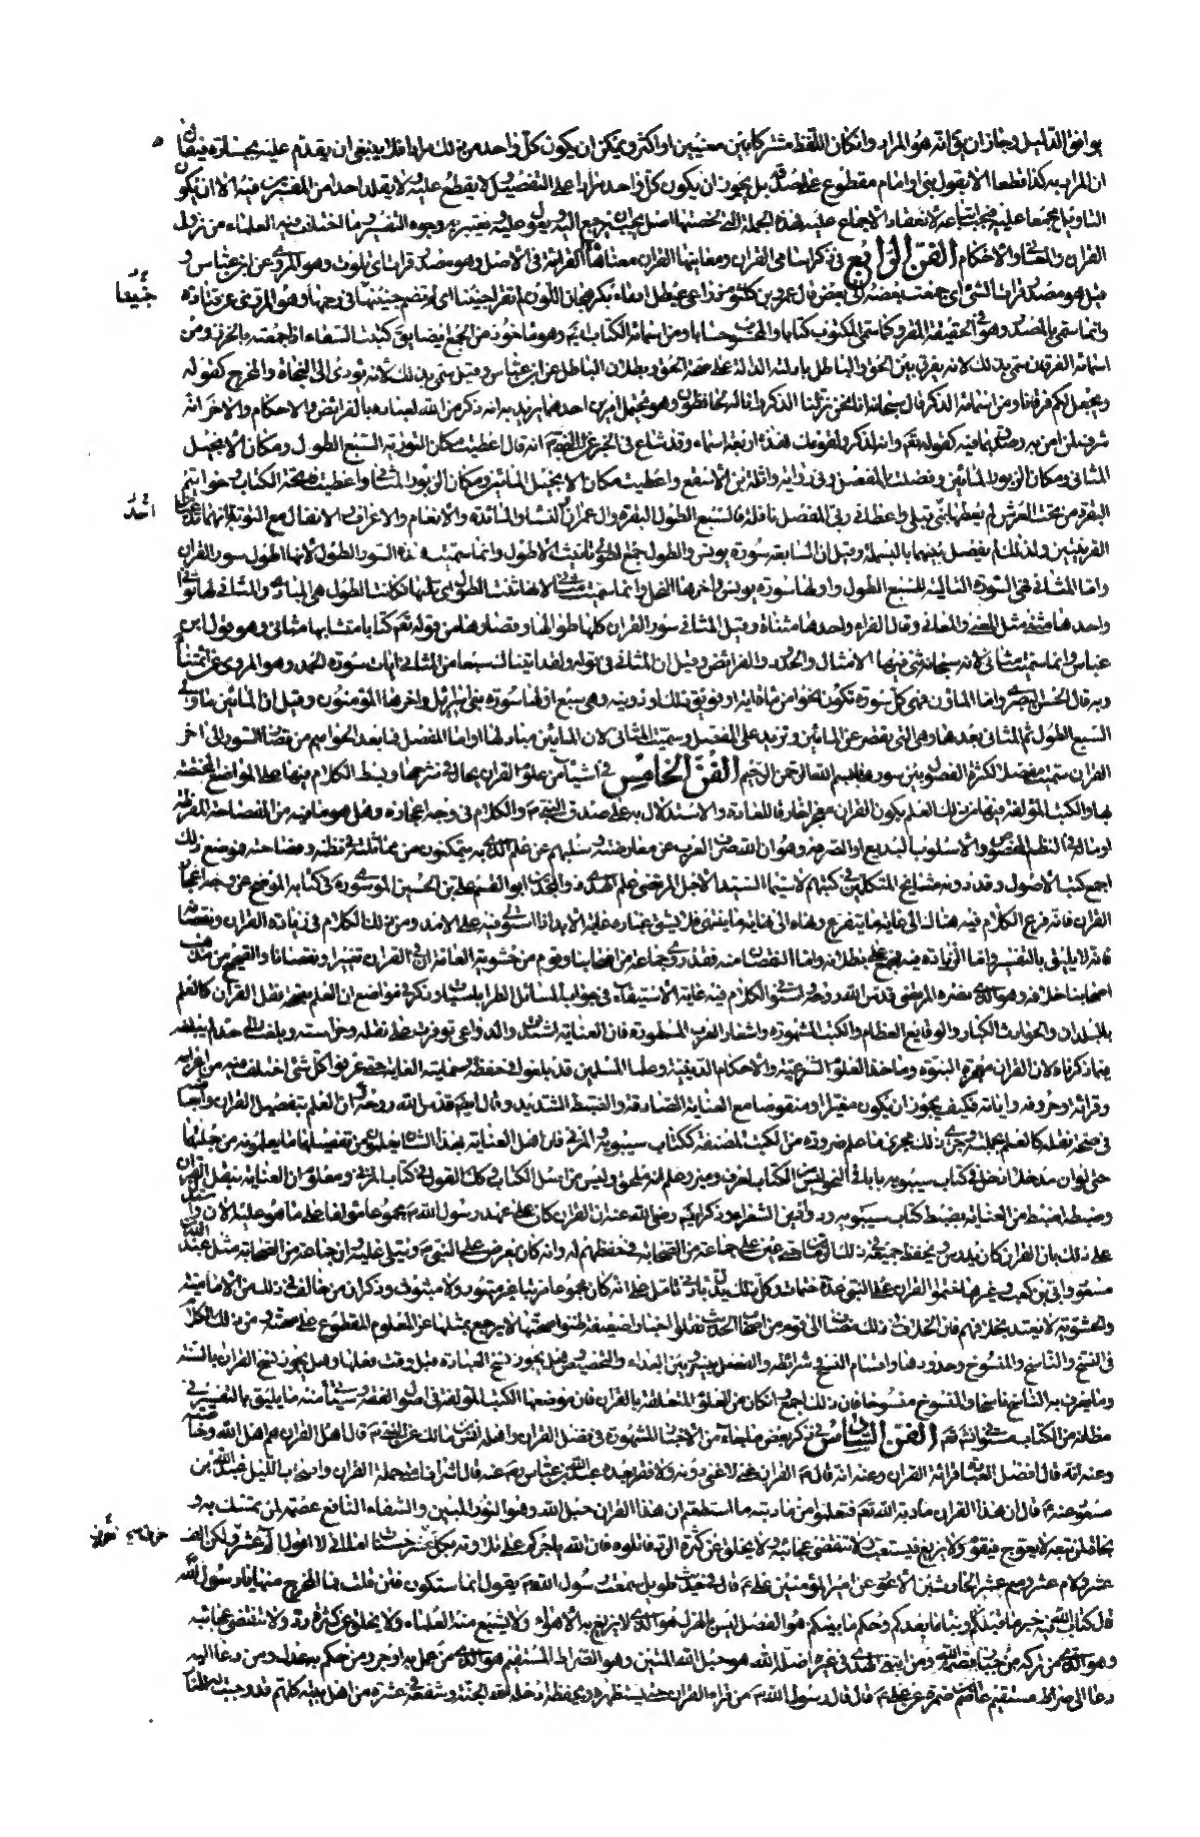 يوافق الدليل وجاز ان يقال انه هو المراد وان كان اللفظ مشتركا بين معنيين او اكثر ويمكن ان يكون كل واحد من ذلك مرادا فلا ينبغى ان يقدم عليه بجسارة فيقال
ان المراد به كذا قطعا الا بقول نبى او امام مقطوع على صدقه بل يجوز ان يكون كل واحد مرادا على التفصيل ولا يقطع عليه ولا يقلد احدا من المفسرين فيه الا ان يكون
التاويل مجمعا عليه فيجب اتباعه لانعقاد الاجماع عليه فهذه الجملة التى لخصتها اصل يجب ان يرجع اليه ويعول عليه ويعتبر به وجوه التفسير وما اختلف فيه العلماء من نزول
القران والمعانى والاحكام الفن الرابع فى ذكر اسامى القران ومعانيها القران معناه القراءة فى الاصل وهو مصدر قرات اى تلوت وهو المروى عن ابن عباس و
قيل هو مصدر قرات الشئ اى جمعت بعضه الى بعض قال عمرو بن كلثوم ذراعى عيطل ادماء بكر هجان اللون لم تقرا جنينا اى لم تضم جنينها فى رحمها وهو المروى عن قتادة
جنينا
وانما سمى بالمصدر وهو فى الحقيقة المقرو كما سمى المكتوب كتابا والمحسوب حسابا ومن اسمائه الكتاب ايضا وهو ماخوذ من الجمع ايضا يقال كتبت السقاء اذا جمعته بالخرز ومن
اسمائه الفرقان سمى بذلك لانه يفرق بين الحق والباطل بادلته الدالة على صحة الحق وبطلان الباطل عن ابن عباس وقيل سمى بذلك لانه يؤدى الى النجاة والمخرج كقوله
ويجعل لكم فرقانا ومن اسمائه الذكر قال سبحانه انا نحن نزلنا الذكر وانا له لحافظون وهو يحتمل امرين احدهما يريد به انه ذكر من الله لعباده بالفرائض والاحكام والاخر انه
شرف لمن امن به وصدق بما فيه كقوله تم وانه لذكر لك ولقومك فهذه اربعة اسماء وقد شاع فى الخبر عن النبى م انه قال اعطيت مكان التورية السبع الطول ومكان الانجيل
المثانى ومكان الزبور المائين وفضلت بالمفصل وفى رواية واثلة بن الاسقع واعطيت مكان الانجيل المائين ومكان الزبور المثانى واعطيت فاتحة الكتاب وخواتيم
البقرة من تحت العرش لم يعطها نبى قبلى واعطانى ربى المفصل نافلة فالسبع الطول البقرة وال عمران والنساء والمائدة والانعام والاعراف والانفال مع التوبة لانهما
احد
القرينتين ولذلك لم يفصل بينهما بالبسملة وقيل ان السابعة سورة يونس والطول جمع الطولى تانيث الاطول وانما سميت هذه السور الطول لانها اطول سور القران
واما المثانى فهى السورة التالية للسبع الطول واولها سورة يونس واخرها النحل وانما سميت مثانى لانها ثنت الطول اى تلتها فكانت الطول هى المبادى والمثانى لها ثوانى
واحدها مثنى مثل المعنى والمعانى وقال الفراء واحدها مثناة وقيل المثانى سور القران كلها طوالها وقصارها من قوله تم كتابا متشابها مثانى وهو قول ابن
عباس وانما سميت مثانى لانه سبحانه ثنى فيها الامثال والحدود والفرائض وقيل ان المثانى فى قوله ولقد اتيناك سبعا من المثانى ايات سورة الحمد وهو المروى عن ائمتنا
وبه قال الحسن البصرى واما المائون فهى كل سورة تكون نحوا من ماة اية او فويق ذلك او دوينه وهى سبع اولها سورة بنى اسرائيل واخرها المؤمنون وقيل ان المائين ما ولى
السبع الطول ثم المثانى بعدها وهى التى يقصر عن المائين وتزيد على المفصل وسميت المثانى لان المائين مباد لها واما المفصل فما بعد الحواميم من قصار السور الى اخر
القران سميت مفصلا لكثرة الفصول بين سورها ببسم الله الرحمن الرحيم الفن الخامس فى اشياء من علوم القران يحال فى شرحها وبسط الكلام فيها على المواضع المختصة
بها والكتب المؤلفة فيها من ذلك العلم بكون القران معجزا خارقا للعادة والاستدلال به على صدق النبى م والكلام فى وجه اعجازه وهل هو ما فيه من الفصاحة المفرطة
او ما له من النظم المخصوص والاسلوب البديع او الصرفة وهو ان الله صرف العرب عن معارضته وسلبهم عن العلم الذى به يتمكنون من مماثلته فى نظمه وفصاحته فموضع ذلك
اجمع كتب الاصول وقد دونه مشايخ المتكلمين فى كتبهم لاسيما السيد الاجل المرتضى علم الهدى ذو المجدين ابو القسم على بن الحسين الموسوى فى كتابه الموضح عن وجه اعجاز
القران فانه فرع الكلام فيه هناك الى غاية ما يتفرع ونهاه الى نهاية ما ينتهى فلا يشق غباره غاية الابد اذا استولى فيه على الامد ومن ذلك الكلام فى زيادة القران ونقصانه
فانه لا يليق بالتفسير فاما الزيادة فيه فمجمع على بطلانه واما النقصان منه فقد روى جماعة من اصحابنا وقوم من حشوية العامة ان فى القران تغييرا ونقصانا والصحيح من مذهب
اصحابنا خلافه وهو الذى نصره المرتضى قدس الله روحه واستوفى الكلام فيه غاية الاستيفاء فى جواب المسائل الطرابلسيات وذكر فى مواضع ان العلم بصحة نقل القران كالعلم
بالبلدان والحوادث الكبار والوقايع العظام والكتب المشهورة واشعار العرب المسطورة فان العناية اشتدت والدواعى توفرت على نقله وحراسته وبلغت الى حد لم يبلغه
فيما ذكرناه لان القران معجزة النبوة وماخذ العلوم الشرعية والاحكام الدينية وعلماء المسلمين قد بلغوا فى حفظه وحمايته الغاية حتى عرفوا كل شئ اختلف فيه من اعرابه
وقرائته وحروفه واياته فكيف يجوز ان يكون مغيرا او منقوصا مع العناية الصادقة والضبط الشديد وقال ايضا قدس الله روحه ان العلم بتفصيل القران وابعاضه
فى صحة نقله كالعلم بجملته وجرى ذلك مجرى ما علم ضرورة من الكتب المصنفة ككتاب سيبويه والمزنى فان اهل العناية بهذا الشان يعلمون من تفصيلهما ما يعلمونه من جملتهما
حتى لو ان مدخلا ادخل فى كتاب سيبويه بابا فى النحو ليس من الكتاب لعرف وميز وعلم انه ملحق وليس من اصل الكتاب وكذلك القول فى كتاب المزنى ومعلوم ان العناية بنقل القران
وضبطه اضبط من العناية بضبط كتاب سيبويه ودواوين الشعراء وذكر ايضا رضى الله عنه ان القران كان على عهد رسول الله م مجموعا مؤلفا على ما هو عليه الان واستدل
على ذلك بان القران كان يدرس ويحفظ جميعه فى ذلك الزمان حتى عين على جماعة من الصحابة فى حفظهم له وانه كان يعرض على النبى م ويتلى عليه وان جماعة من الصحابة مثل عبد الله
مسعود وابى بن كعب وغيرهما ختموا القران على النبى عدة ختمات وكل ذلك يدل بادنى تامل على انه كان مجموعا مرتبا غير مبتور ولا مبثوث وذكر ان من خالف فى ذلك من الامامية
والحشوية لا يعتد بخلافهم فان الخلاف فى ذلك مضاف الى قوم من اصحاب الحديث نقلوا اخبارا ضعيفة ظنوا صحتها لا يرجع بمثلها عن المعلوم المقطوع على صحته ومن ذلك الكلام
فى النسخ والناسخ والمنسوخ وحدودها واقسام النسخ وشرائطه والفصل بينه وبين البداء والتخصيص وهل يجوز نسخ العبادة قبل وقت فعلها وهل يجوز نسخ القران بالسنة
وما يعرف به الناسخ ناسخا والمنسوخ منسوخا فان ذلك اجمع وان كان من العلوم المتعلقة بالقران فان موضعها الكتب المؤلفة فى اصول الفقه وسيأتى منه ما يليق بالتفسير فى
مظانه من الكتاب مستوفى انشاء الله الفن السادس فى ذكر بعض ما جاء من الاخبار المشهورة فى فضل القران واهله انس بن مالك عن النبى م قال اهل القران هم اهل الله وخاصته
وعنه انه قال افضل العبادة قرائة القران وعنه انه قال م القران غنى لا غنى دونه ولا فقر بعده عبد الله بن عباس عنه م قال اشراف امتى حملة القران واصحاب الليل عبد الله بن
مسعود عنه م قال ان هذا القران مادبة الله تم فتعلموا من مادبته ما استطعتم ان هذا القران حبل الله وهو النور المبين والشفاء النافع عصمة لمن تمسك به و
نجاة لمن تبعه لا يعوج فيقوم ولا يزيغ فيستعتب ولا تنقضى عجائبه ولا يخلق عن كثرة الرد فاتلوه فان الله ياجركم على تلاوته بكل حرف عشر حسنات اما انى لا اقول الم عشر ولكن الف
عشر ولام عشر وميم عشر الحارث بن الاعور عن امير المؤمنين على م قال فى حديث طويل سمعت رسول الله م يقول انها ستكون فتن قلت فما المخرج منها يا رسول الله
قال كتاب الله فيه خبر ما قبلكم ونبا ما بعدكم وحكم ما بينكم هو الفصل ليس بالهزل هو الذى لا تزيغ به الاهواء ولا يشبع منه العلماء ولا يخلق عن كثرة رد ولا تنقضى عجائبه
وهو الذى من تركه من جبار قصمه الله ومن ابتغى الهدى فى غيره اضله الله هو حبل الله المتين وهو الصراط المستقيم هو الذى من عمل به اوجر ومن حكم به عدل ومن دعا اليه
دعا الى صراط مستقيم عاصم بن ضمرة عن على م قال قال رسول الله م من قرا القران حتى يستظهره ويحفظه ادخله الله الجنة وشفعه فى عشرة من اهل بيته كلهم قد وجبت لهم النار